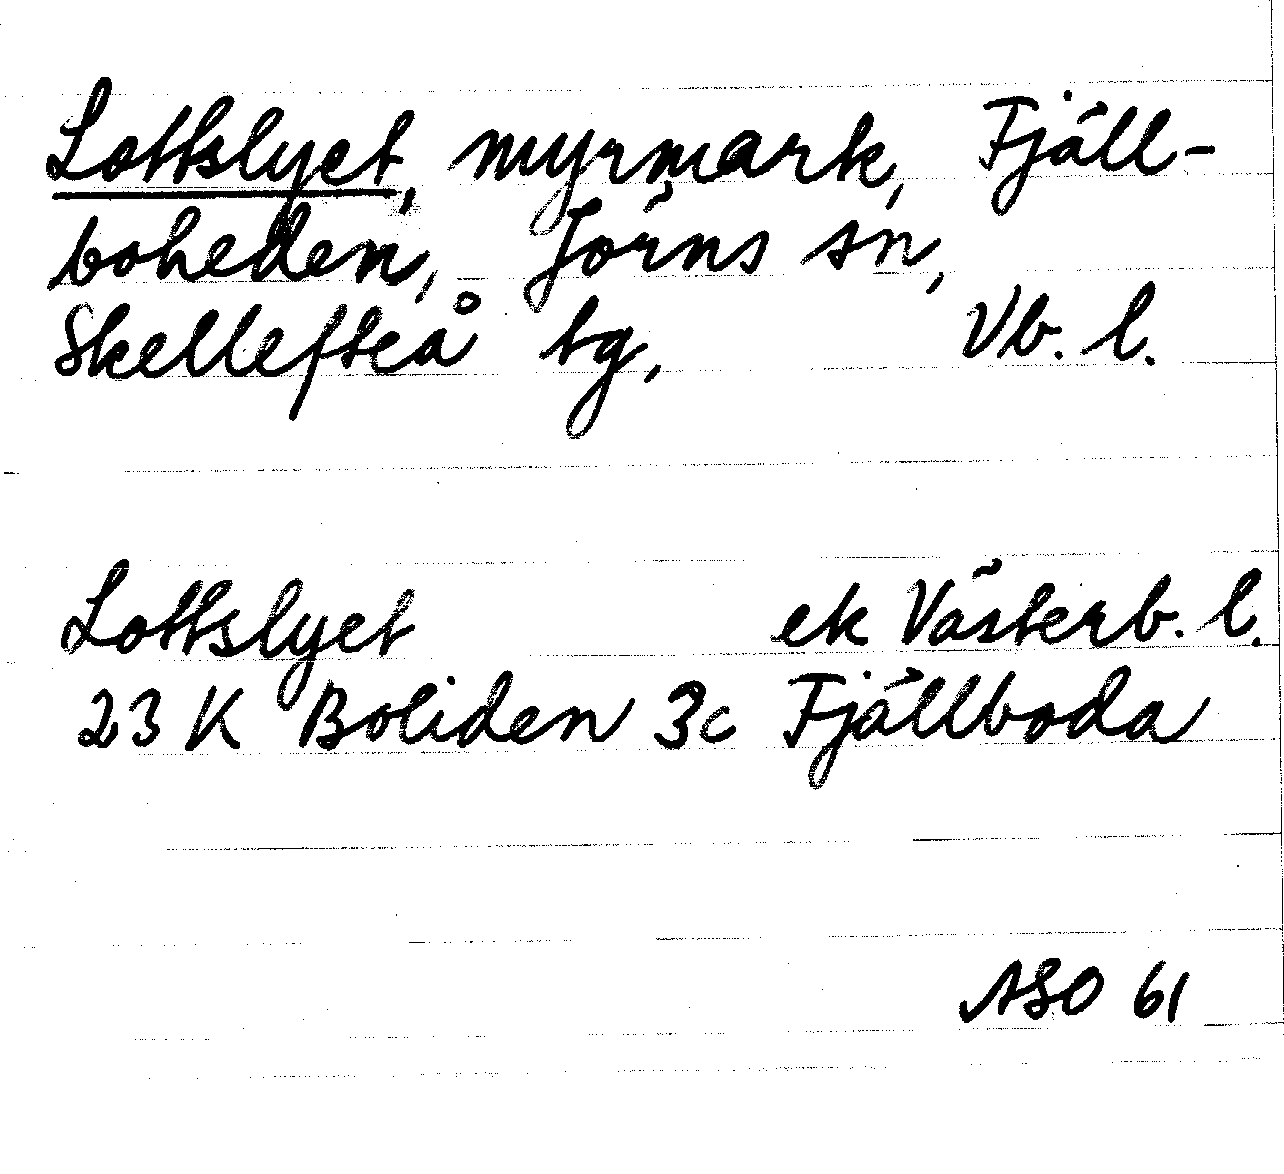 Lottslyet, myrmark, Fjäll-
boheden, Jörns sn,
Skellefteå tg, Vb. l.
Lottslyet ek Västerb. l.
23 K Boliden 3c Fjällboda
ASO 61